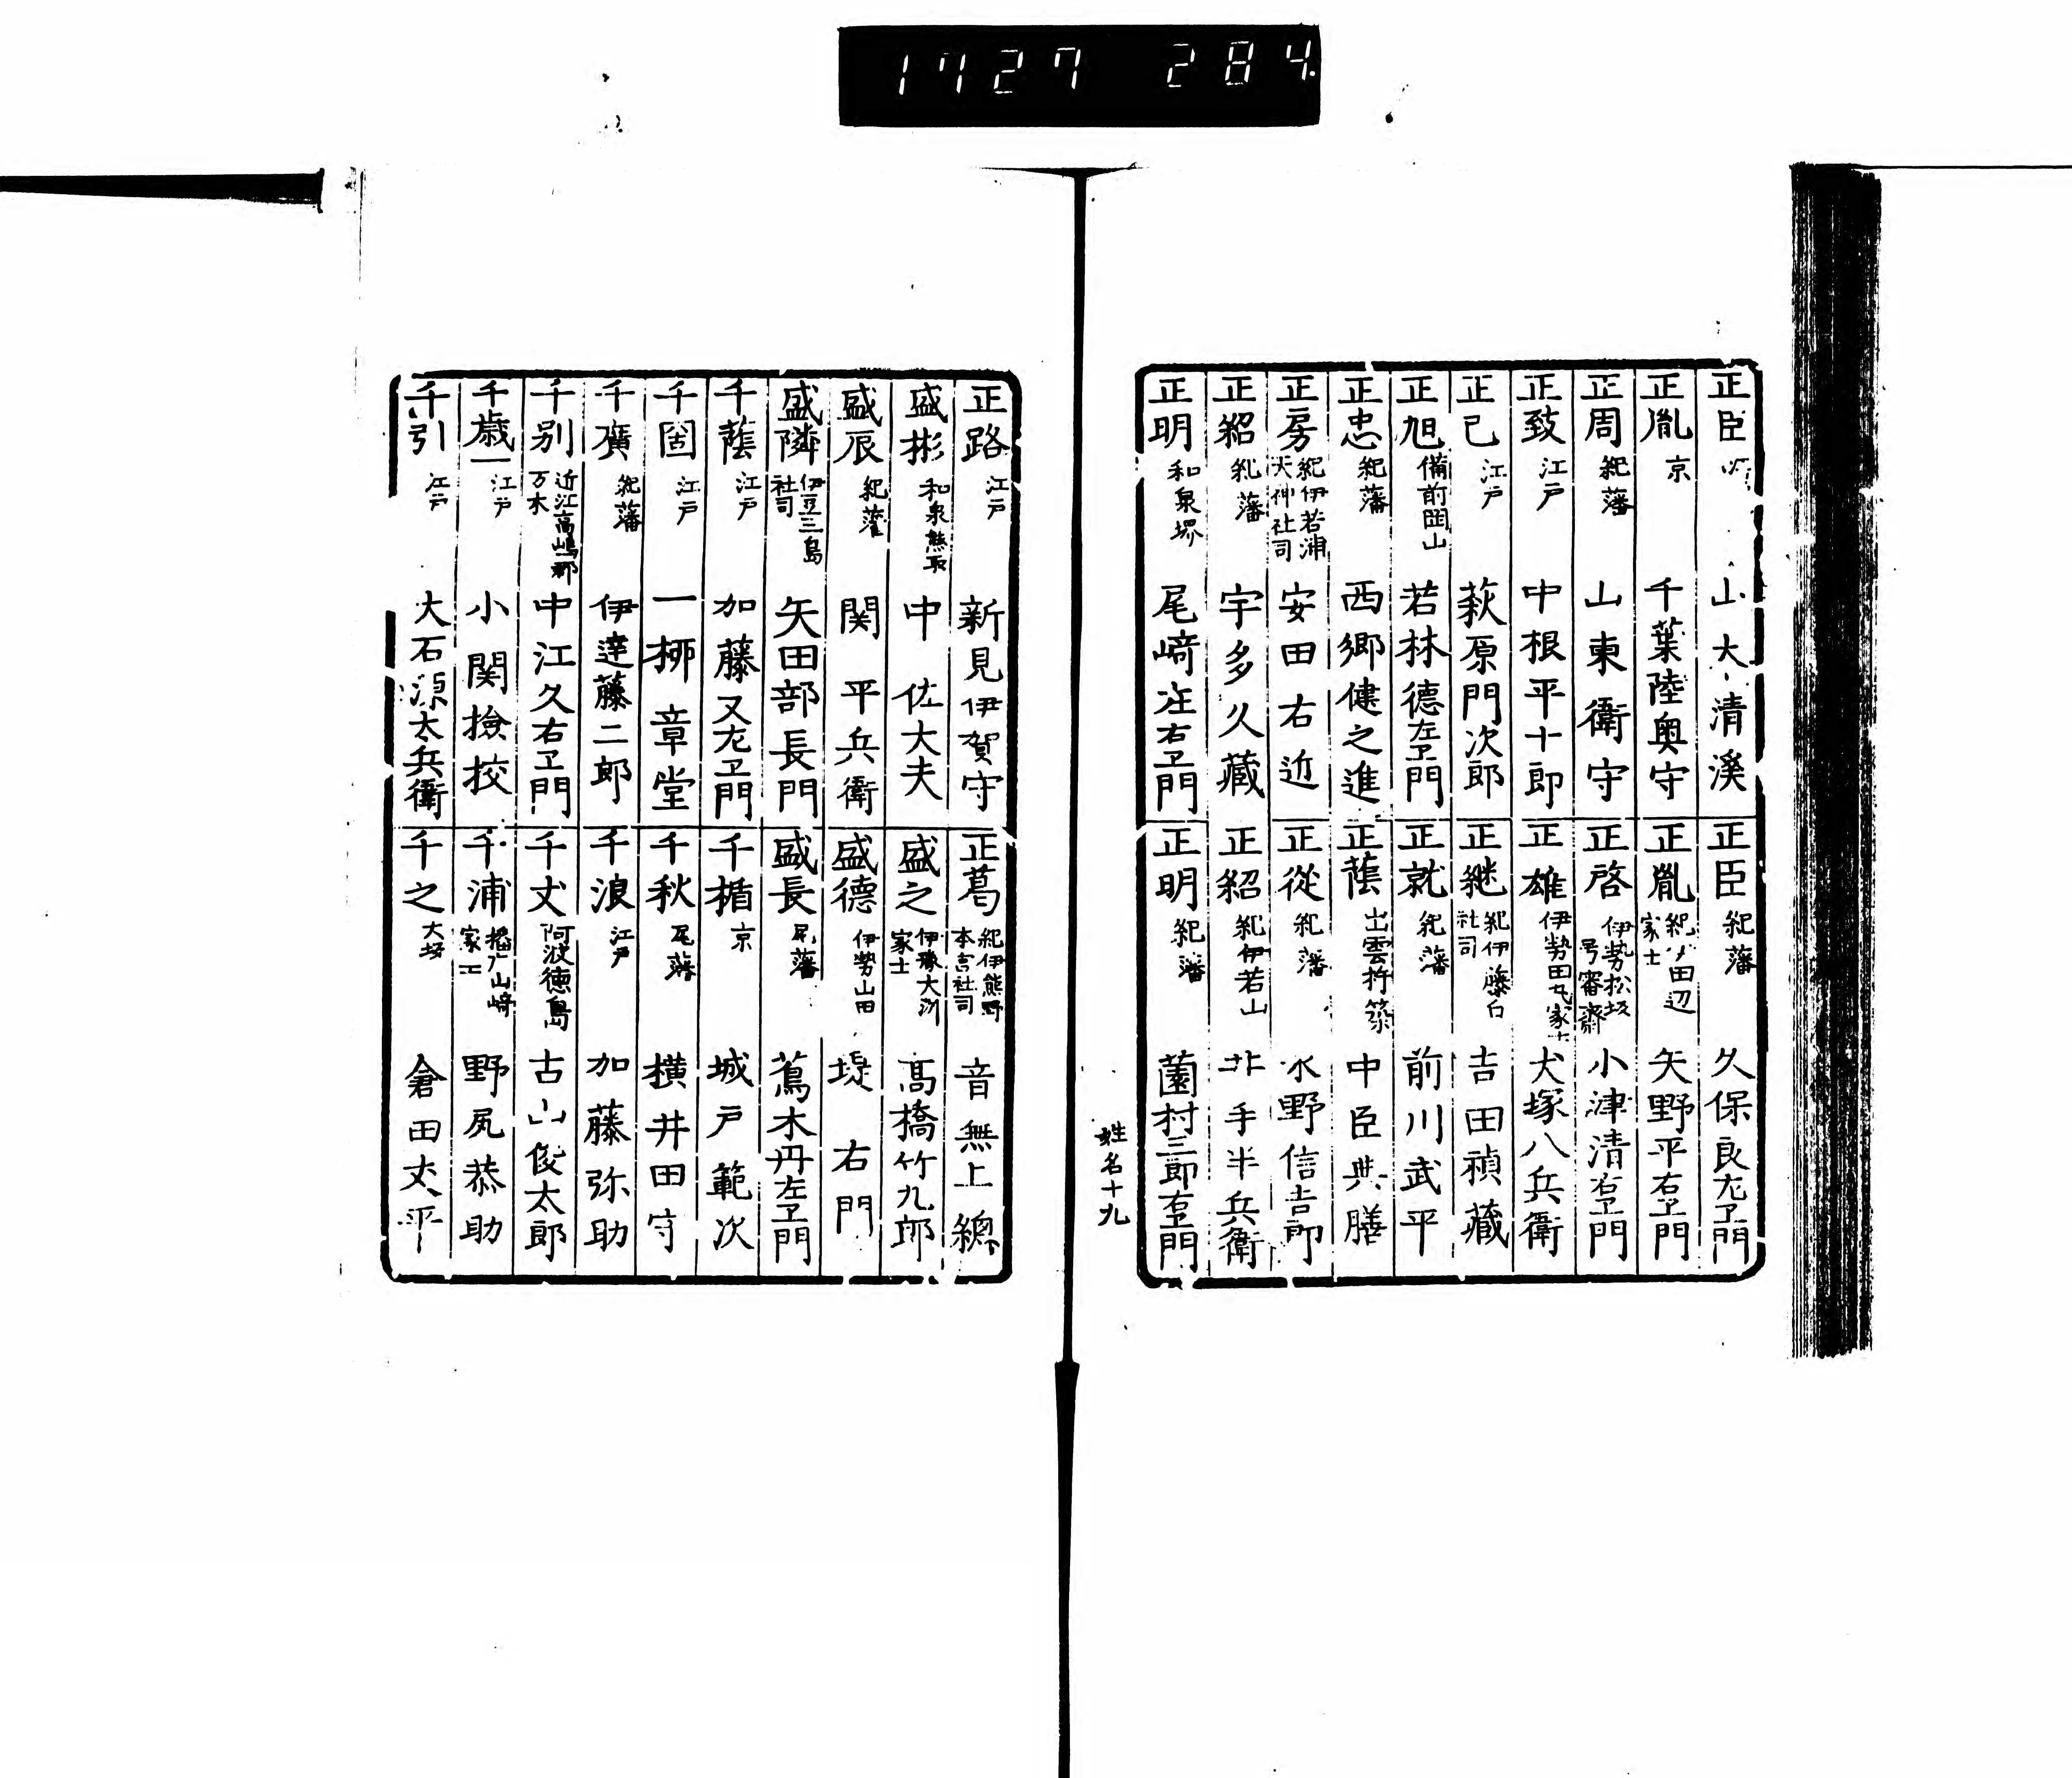 1727 284
正臣 山大清溪
正胤 京 千葉陸奥守
正周 紀藩 山東衛守
正致 江戸 中根平十郎
正己 江戸 萩原門次郎
正旭 備前岡山 若林德左衛門
正忠 紀藩 西郷健之進
正房 紀伊若浦天神社司 安田右近
正紹 紀藩 宇多久藏
正明 和泉堺 尾﨑庄右卫門
正臣 紀藩 久保良左卫門
正胤 紀伊田辺家士 矢野平右卫門
正啓 伊勢松坂号審齋 小津清右卫門
正雄 伊勢田丸家士 犬塚八兵衛
正継 紀伊藤白社司 吉田禎藏
正就 紀藩 前川武平
正蔭 出雲杵築 中臣典膳
正從 紀藩 水野信吉郎
正紹 紀伊若山 井手半兵衛
正明 紀藩 薗村三郎右卫門
姓名十九
正路 江戸 新見伊賀守
盛彬 和泉熊取 中佐大夫
盛辰 紀藩 関平兵衛
盛隣 伊豆三島社司 矢田部長門
千蔭 江戸 加藤又左卫門
千固 江戸 一柳章堂
千廣 紀藩 伊達藤二郎
千別 近江高嶋郡万木 中江久右卫門
千歳 江戸 小関撿挍
千引 江戸 大石源太兵衛
正葛 紀伊熊野本宮社司 音無上總
盛之 伊豫大洲家士 髙橋竹九郎
盛德 伊勢山田 堤右門
盛長 尾藩 蔦木丹左卫門
千楯 京 城戸範次
千秋 尾藩 横井田守
千浪 江戸 加藤弥助
千丈 阿波徳島 古山俊太郎
千浦 播广山﨑家士 野尻恭助
千之 大坂 倉田丈平